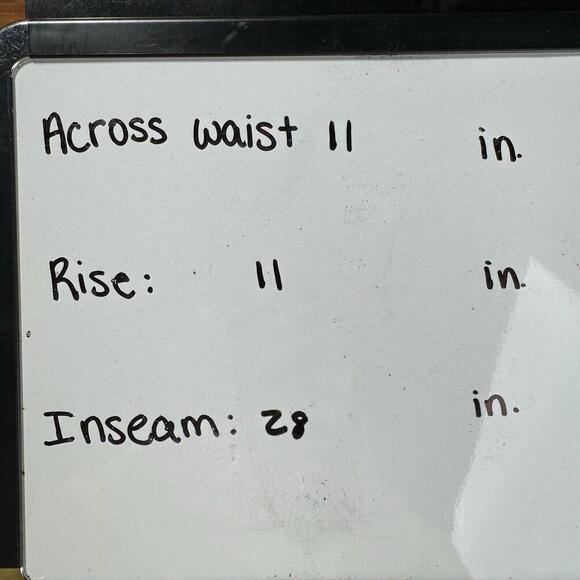 Across waist 11 in.
Rise: 11 in.
Inseam: 28 in.